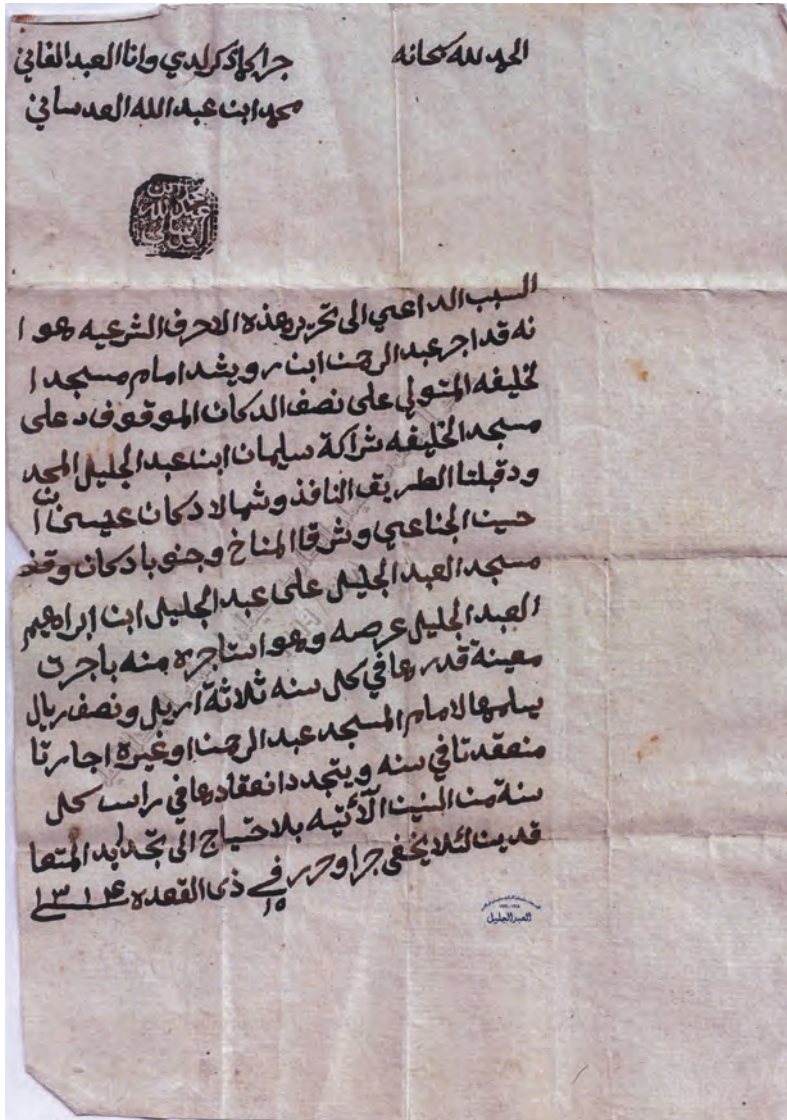 الحمد لله سبحانه
جرا بما ذكر لدي وانا العبد الفاني
محمد ابن عبد الله العدساني
السبب الداعي الى تحرير هذه الاحرف الشرعيه هو ا
نه قد اجر عبد الرحمن ابن رويشد امام مسجد ا
لخليفه المتولي على نصف الدكان الموقوف على
مسجد الخليفه شراكة سليمان ابن عبد الجليل المحد
ود قبلتا الطريق النافذ وشمالا دكان عيسى ابن
حسين الجناعي وشرقا المناخ وجنوبا دكان وقف
مسجد العبد الجليل على عبد الجليل ابن ابراهيم
العبد الجليل عرصه وهو استاجره منه باجرت
معينة قدرها في كل سنه ثلاثة اريل ونصف ريال
يسلمها لامام المسجد عبد الرحمن او غيره اجارتا
منعقدتا في سنه ويتجدد انعقادها في راس كل
سنة من السنين الآتيه بلا حتياج الى تجديد المتعا
قدين لئلا يخفى جرا وحرر في ١٥ ذى القعده ١٣١٤
العبد الجليل